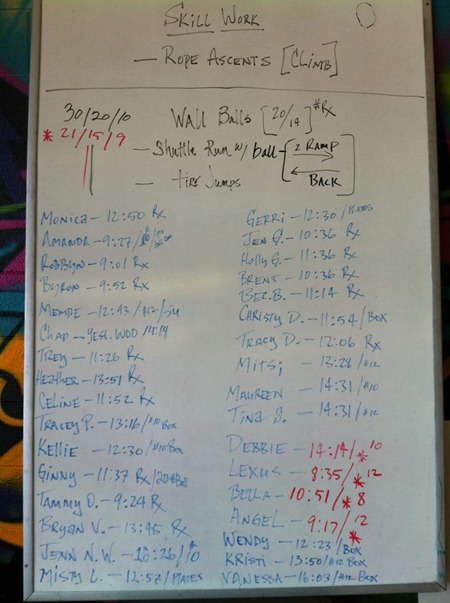 SKILL WORK
— ROPE ASCENTS [CLIMB]
30/20/10
* 21/15/9
WALL BALLS [20/14] #Rx
— Shuttle Run w/ ball — 2 RAMP
BACK
— tire Jumps
MONICA — 12:50 Rx
AMANDA — 9:27/
ROBBYN — 9:01 Rx
BYRON — 9:52 Rx
12:43/#12/
CHAD — YEST. WOD 14:14
TREY — 11:26 Rx
HEATHER — 13:51 Rx
CELINE — 11:52 Rx
TRACEY P. — 13:16/#10 BOX
KELLIE — 12:30/#10 BOX
GINNY — 11:37 Rx/20# Ball
TAMMY O. — 9:24 Rx
BRYAN V. — 13:45 Rx
JENN N.W. —
MISTY L. — 12:57/PLATES
GERRI — 12:30/
JEN G. — 10:36 Rx
HOLLY G. — 11:36 Rx
BRENT — 10:36 Rx
11:14 Rx
CHRISTY D. — 11:54/BOX
TRACY D. — 12:06 Rx
MITSI — 13:28/#12
MAUREEN — 14:31/#10
TINA S. — 14:31/#12
DEBBIE — 14:14/* 10
LEXUS — 8:35/* 12
BELLA — 10:51/* 8
ANGEL — 9:17/12 *
WENDY — 12:23/BOX
KRISTI — 13:50/#12 BOX
VANESSA — 16:03/#12 BOX